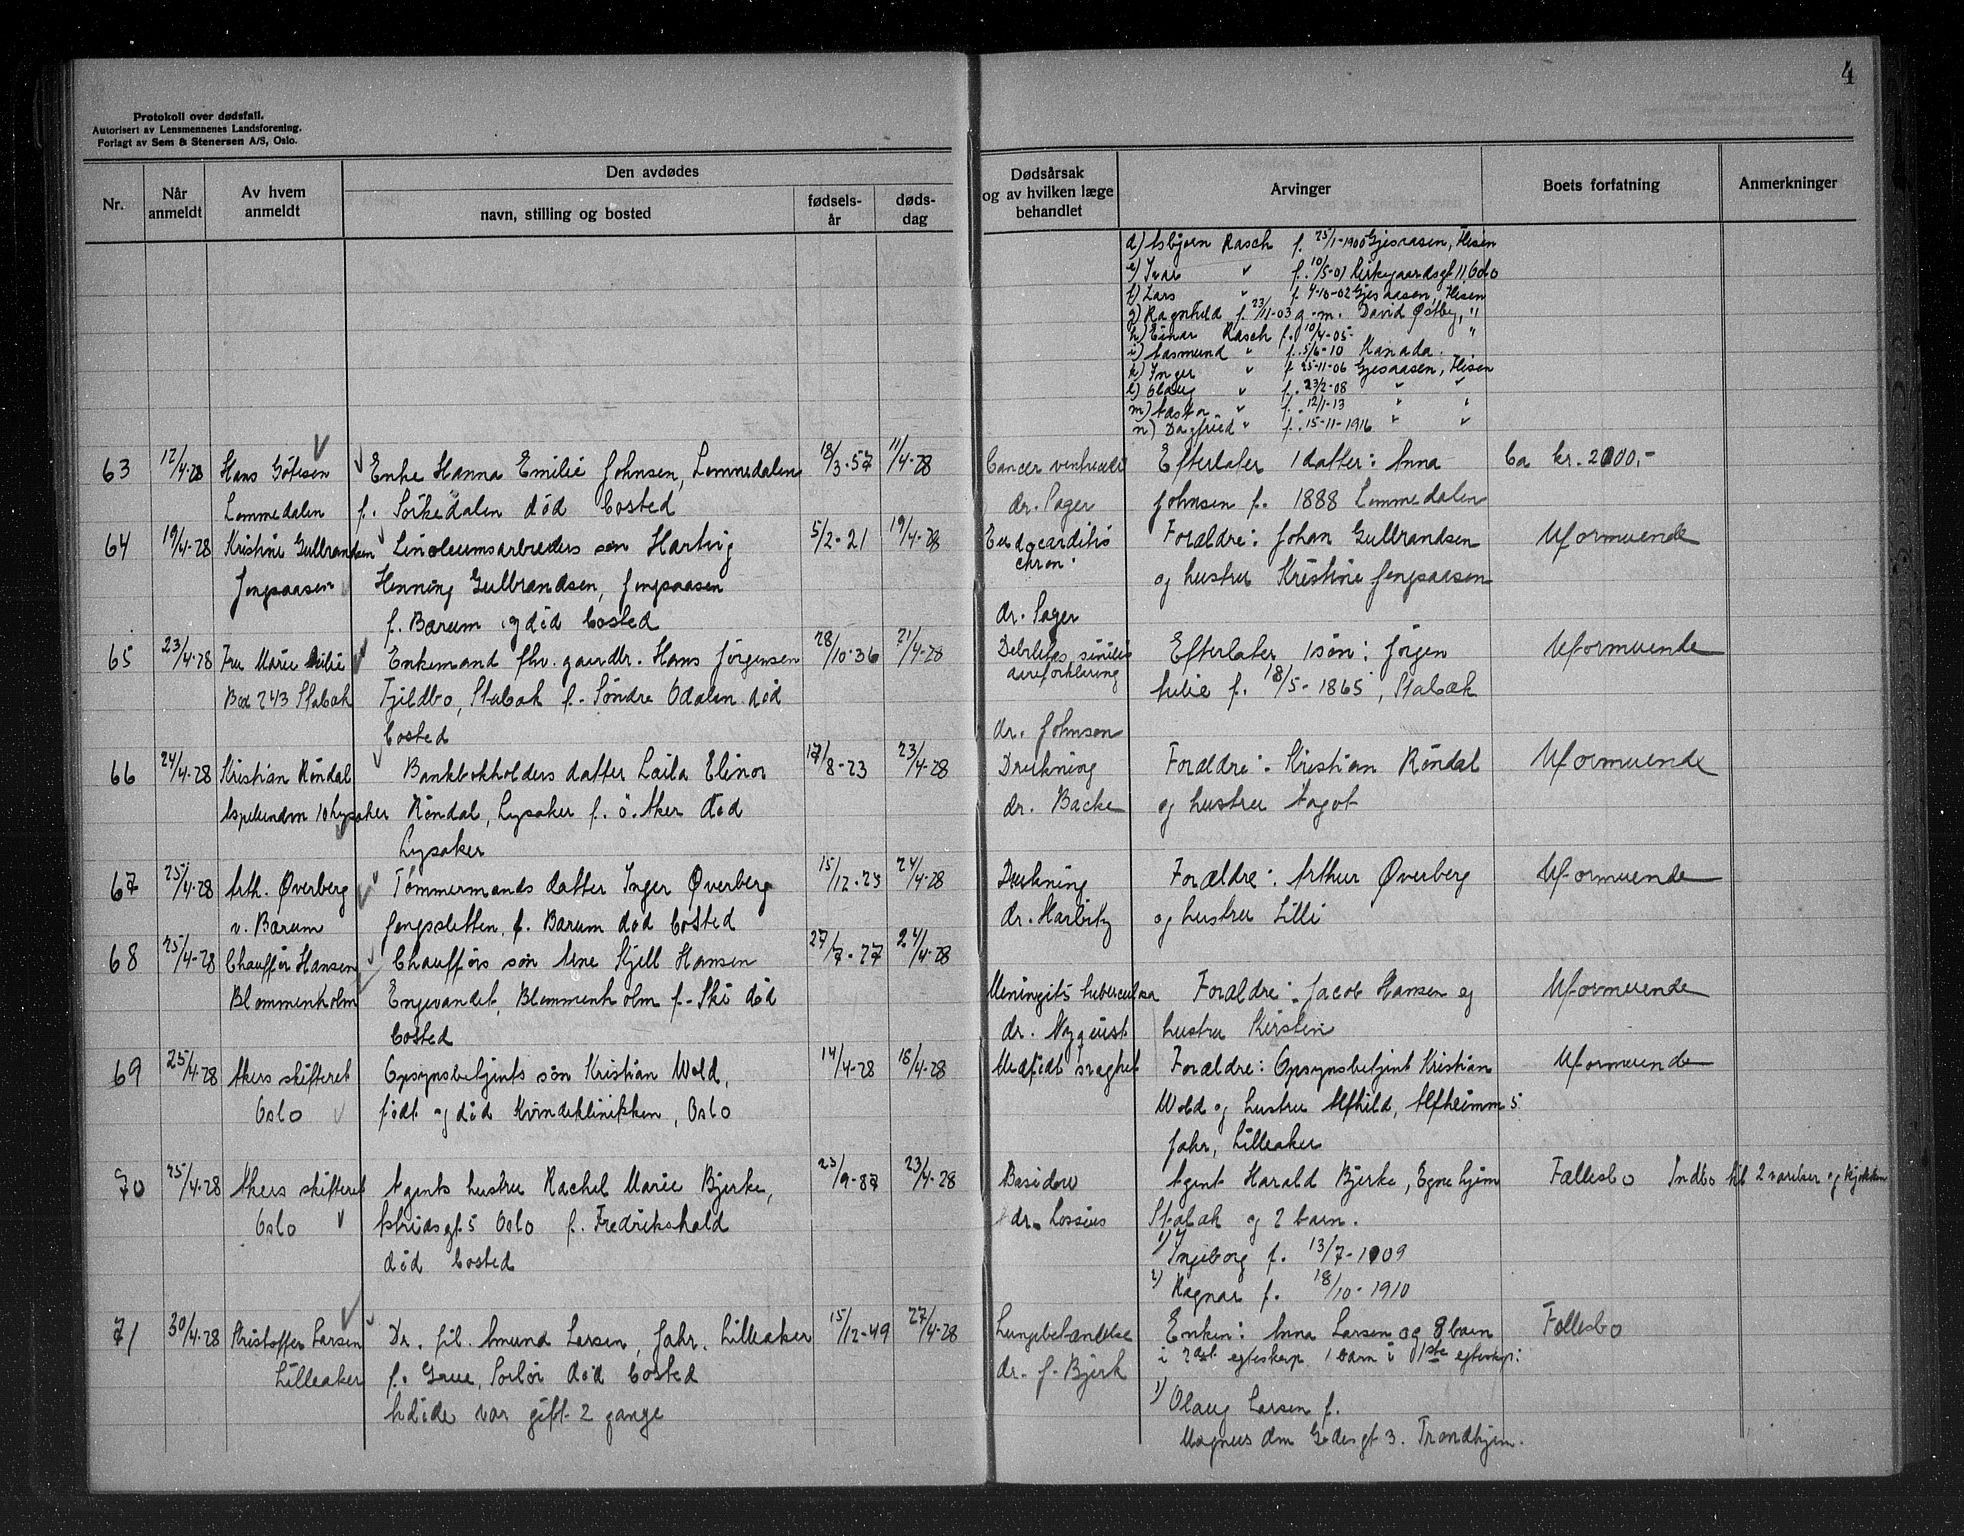 4
Protokoll over dødsfall.
Autorisert av Lensmennenes Landsforening.
Forlagt av Sem & Stenersen A/S, Oslo.
Nr.
Når anmeldt
Av hvem anmeldt
Den avdødes
navn, stilling og bosted
fødsels-år
døds-dag
Dødsårsak og av hvilken læge behandlet
Arvinger
Boets forfatning
Anmerkninger
d) Asbjørn Rasch f. 25/1-1900 Gjesaasen, Hisen
e) Ivar " f. 10/5-01 Kirkegaardsgt 11 Oslo
f) Lars " f. 4-10-02 Gjesaasen, Hisen
g) Ragnhild f. 23/11-03 g.m. David Østby, "
h) Einar Rasch f. 10/4-05 "
i) Aasmund " f. 5/6-10 Kanada.
k) Inger " f. 25-11-06 Gjesaasen, Hisen
l) Olaug " f. 23/2-08 " "
m) Aasta " f. 12/1-13 " "
n) Dagfried " f. 15-11-1916 " "
63 12/4-28 Hans Götesen Enke Hanna Emilie Johnsen, Lommedalen 18/3-57 11/4-28 Cancer ventriculi Efterlater 1 datter: Anna Ca kr. 2000,-
Lommedalen f. Sörkedalen död bosted dr. Sager Johnsen f. 1888 Lommedalen
64 19/4-28 Kristine Gulbrandsen Linoleumsarbeiders sön Hartvig 5/2-21 19/4-28 Endocarditis Forældre: Johan Gulbrandsen Uformuende
Jongsaasen Henning Gulbrandsen, Jongsaasen chron. og hustru Kristine Jongsaasen
f. Bærum og död bosted dr. Sager
65 23/4-28 Fru Marie Lilie Enkemand fhv. gaardbr. Hans Jörgensen 28/10-36 21/4-28 Debilitas sinilis Efterlater 1 sön: Jörgen Uformuende
Box 243 Stabæk Fjeldbo, Stabæk f. Söndre Odalen död areforklering Lilie f. 18/5-1865, Stabæk
bosted dr. Johnsen
66 24/4-28 Kristian Röndal Bankbokholders datter Laila Elinor 17/8-23 23/4-28 Drukning Forældre: Kristian Röndal Uformuende
10 Lysaker Röndal, Lysaker f. ö. Aker död dr. Backe og hustru Aagot
Lysaker
67 25/4-28 Arth. Øverberg Tömmermands datter Inger Øverberg 15/12-23 24/4-28 Drukning Forældre: Arthur Øverberg Uformuende
v. Bærum Jongsletten, f. Bærum död bosted dr. Harbitz og hustru Lilli
68 25/4-28 Chaufför Hansen Chaufförs sön Arne Kjell Hansen 27/7-27 24/4-28
Blommenholm Engervandet, Blommenholm f. Ski död Meningits tuberculosa Forældre: Jacob Hansen og Uformuende
bosted dr. Nyquist hustru Kirsten
69 25/4-28 Akers skifteret Opsynsbetjents sön Kristian Wold, 14/4-28 16/4-28 Medfödt svaghet Forældre: Opsynsbetjent Kristian Uformuende
Oslo födt og död Kvindeklinikken, Oslo Wold og hustru Alfhild, Alfheimm 5
Jahr, Lilleaker
70 25/4-28 Akers skifteret Agents hustru Rachel Marie Bjerke, 23/9-87 23/4-28 Basidow Agent Harald Bjerke, Egne hjem Fællesbo Indbo til 2 værelser og kjökken
Oslo Astridsgt 5 Oslo f. Fredrikshald dr. Lossius Stabæk og 2 barn.
död bosted 1) Ingeborg f. 13/7-1909
2) Ragnar f. 18/10-1910
71 30/4-28 Kristoffer Larsen Dr. fil. Amund Larsen, Jahr, Lilleaker 15/12-49 27/4-28 Lungebetændelse Enken: Anna Larsen og 8 barn Fællesbo
Lilleaker f. Grue, Solör död bosted dr. f. Bjerk i 2det egteskap 1 barn i 1ste egteskap:
Avdöde var gift 2 gange 1) Olaug Larsen f.
Magnus den Godesgt 3. Trondhjem.